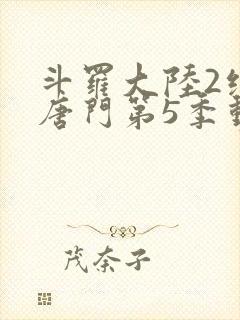 斗羅大陸2
唐門第5季
茂奈子